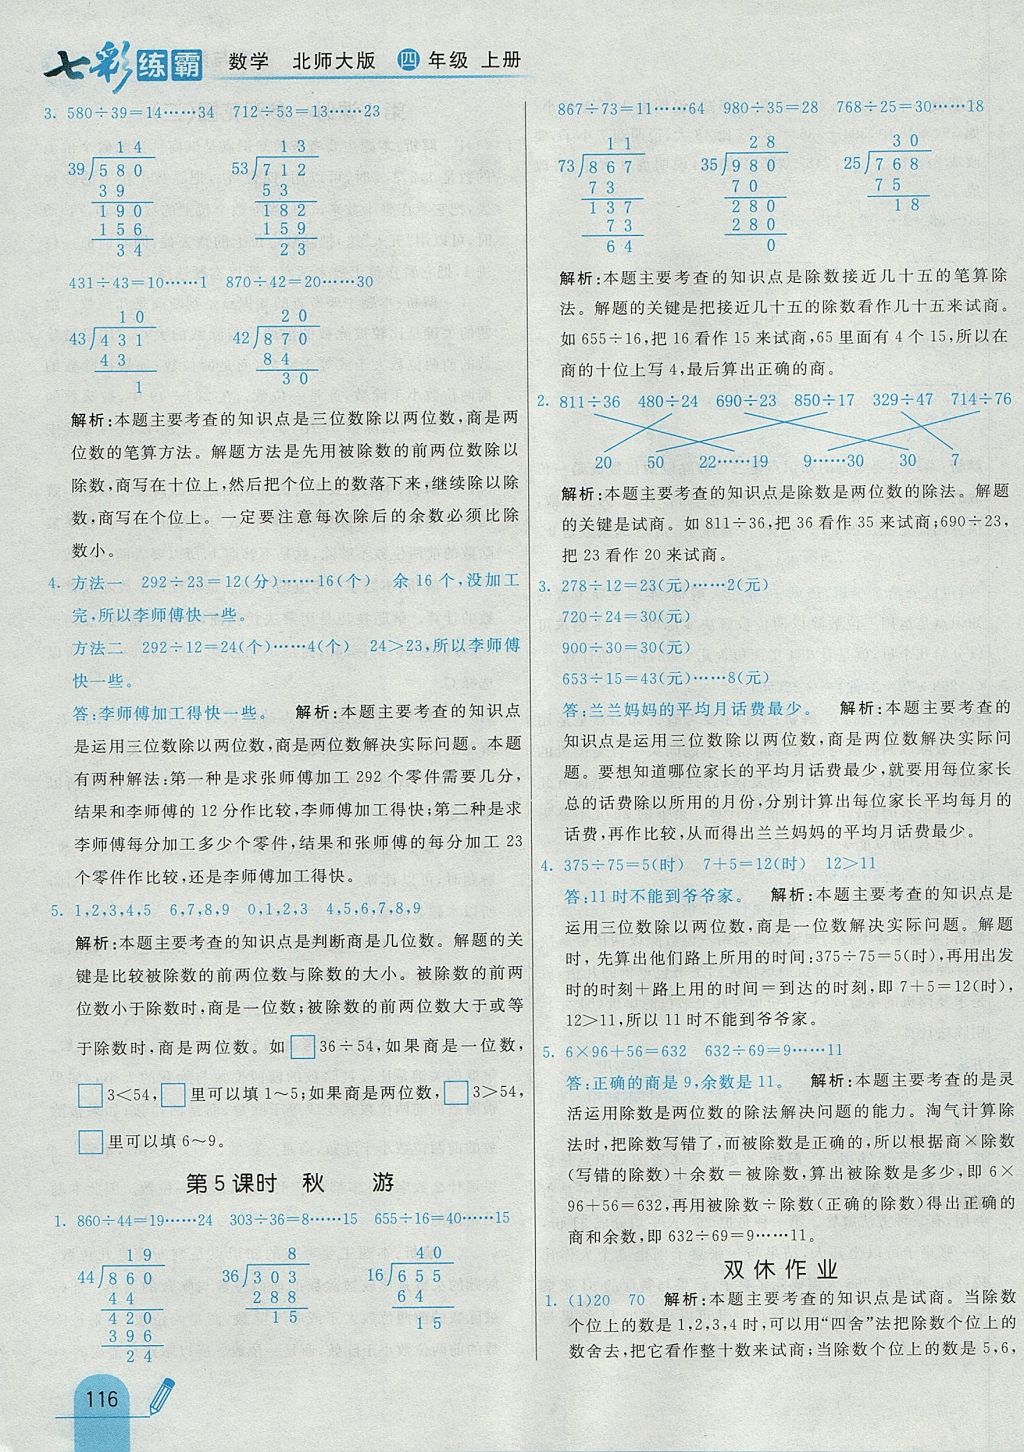 七彩练霸 数学 北师大版 四年级 上册
3. 580÷39=14……34 712÷53=13……23
14 13
39 580 53 712
39 53
190 182
156 159
34 23
431÷43=10……1 870÷42=20……30
10 20
43 431 42 870
43 84
1 30
解析:本题主要考查的知识点是三位数除以两位数,商是两
位数的笔算方法。解题方法是先用被除数的前两位数除以
除数,商写在十位上,然后把个位上的数落下来,继续除以除
数,商写在个位上。一定要注意每次除后的余数必须比除
数小。
4. 方法一 292÷23=12(分)……16(个) 余16个,没加工
完,所以李师傅快一些。
方法二 292÷12=24(个)……4(个) 24>23,所以李师傅
快一些。
答:李师傅加工得快一些。 解析:本题主要考查的知识点
是运用三位数除以两位数,商是两位数解决实际问题。本题
有两种解法:第一种是求张师傅加工292个零件需要几分,
结果和李师傅的12分作比较,李师傅加工得快;第二种是求
李师傅每分加工多少个零件,结果和张师傅的每分加工23
个零件作比较,还是李师傅加工得快。
5. 1,2,3,4,5 6,7,8,9 0,1,2,3 4,5,6,7,8,9
解析:本题主要考查的知识点是判断商是几位数。解题的关
键是比较被除数的前两位数与除数的大小。被除数的前两
位数小于除数时,商是一位数;被除数的前两位数大于或等
于除数时,商是两位数。如□36÷54,如果商是一位数,
□3<54,□里可以填1~5;如果商是两位数,□3>54,
□里可以填6~9。
第5课时 秋 游
1. 860÷44=19……24 303÷36=8……15 655÷16=40……15
19 8 40
44 860 36 303 16 655
44 288 64
420 15 15
396
24
116
867÷73=11……64 980÷35=28 768÷25=30……18
11 28 30
73 867 35 980 25 768
73 70 75
137 280 18
73 280
64 0
解析:本题主要考查的知识点是除数接近几十五的笔算除
法。解题的关键是把接近几十五的除数看作几十五来试商。
如655÷16,把16看作15来试商,65里面有4个15,所以在
商的十位上写4,最后算出正确的商。
2. 811÷36 480÷24 690÷23 850÷17 329÷47 714÷76
20 50 22……19 9……30 30 7
解析:本题主要考查的知识点是除数是两位数的除法。解题
的关键是试商。如811÷36,把36看作35来试商;690÷23,
把23看作20来试商。
3. 278÷12=23(元)……2(元)
720÷24=30(元)
900÷30=30(元)
653÷15=43(元)……8(元)
答:兰兰妈妈的平均月话费最少。 解析:本题主要考查的
知识点是运用三位数除以两位数,商是两位数解决实际问
题。要想知道哪位家长的平均月话费最少,就要用每位家长
总的话费除以所用的月份,分别计算出每位家长平均每月的
话费,再作比较,从而得出兰兰妈妈的平均月话费最少。
4. 375÷75=5(时) 7+5=12(时) 12>11
答:11时不能到爷爷家。 解析:本题主要考查的知识点是
运用三位数除以两位数,商是一位数解决实际问题。解题
时,先算出他们路上所用的时间:375÷75=5(时),再用出发
时的时刻+路上用的时间=到达的时刻,即7+5=12(时),
12>11,所以11时不能到爷爷家。
5. 6×96+56=632 632÷69=9……11
答:正确的商是9,余数是11。 解析:本题主要考查的是灵
活运用除数是两位数的除法解决问题的能力。淘气计算除
法时,把除数写错了,而被除数是正确的,所以根据商×除数
(写错的除数)+余数=被除数,算出被除数是多少,即6×
96+56=632,再用被除数÷除数(正确的除数)得出正确的
商和余数,即632÷69=9……11。
双休作业
1. (1)20 70 解析:本题主要考查的知识点是试商。当除数
个位上的数是1,2,3,4时,可以用“四舍”法把除数个位上的
数舍去,把它看作整十数来试商;当除数个位上的数是5,6,